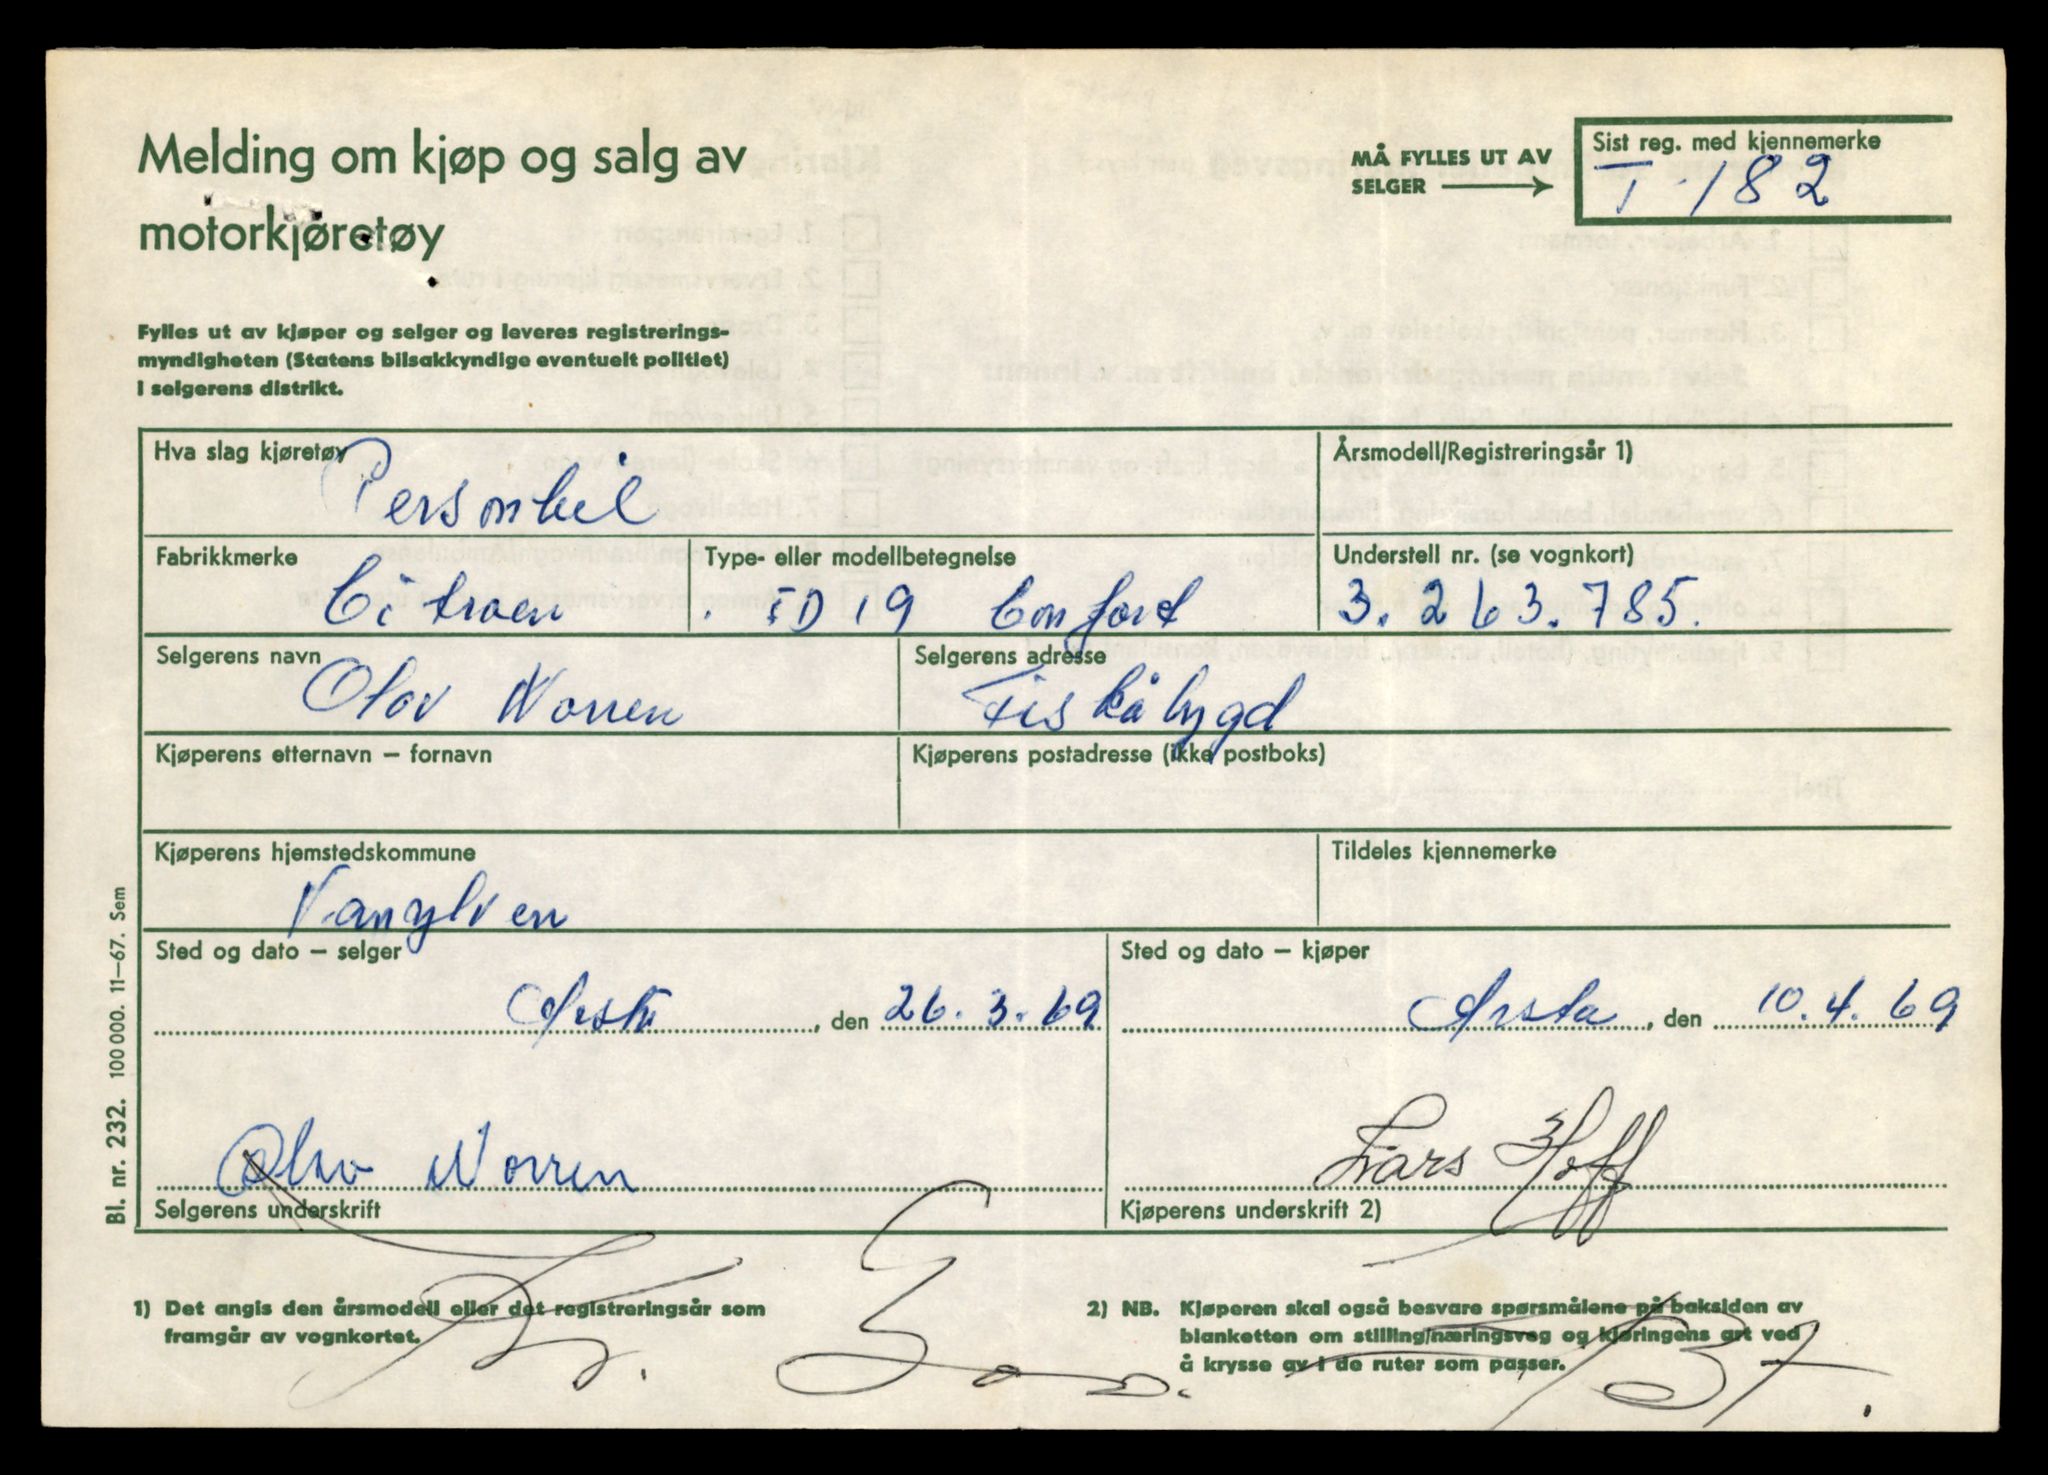 Melding om kjøp og salg av
motorkjøretøy
MÅ FYLLES UT AV
SELGER
Sist reg. med kjennemerke
T-182
Fylles ut av kjøper og selger og leveres registrerings-
myndigheten (Statens bilsakkyndige eventuelt politiet)
i selgerens distrikt.
Hva slag kjøretøy
Personbil
Årsmodell/Registreringsår 1)
Fabrikkmerke
Citroen
Type- eller modellbetegnelse
ID 19 Confort
Understell nr. (se vognkort)
3.263.785.
Selgerens navn
Olav Norren
Selgerens adresse
Fiskåbygd
Kjøperens etternavn – fornavn
Kjøperens postadresse (ikke postboks)
Kjøperens hjemstedskommune
Vanylven
Tildeles kjennemerke
Sted og dato – selger
, den 26.3.69
Sted og dato – kjøper
Ørsta, den 10.4.69
Olav Norren
Selgerens underskrift
Lars Hoff
Kjøperens underskrift 2)
1) Det angis den årsmodell eller det registreringsår som
framgår av vognkortet.
2) NB. Kjøperen skal også besvare spørsmålene på baksiden av
blanketten om stilling/næringsveg og kjøringens art ved
å krysse av i de ruter som passer.
Bl. nr. 232. 100 000. 11–67. Sem